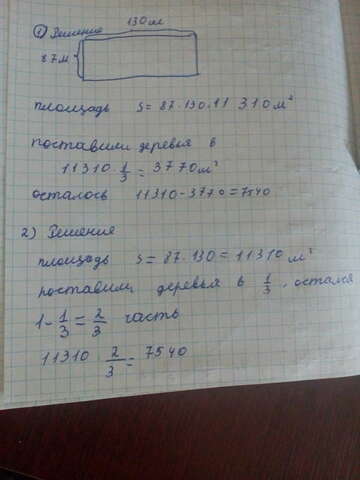 1) Решение
130м
87м
площадь S = 87·130·11 310 м²
поставили деревья в
11310·1/3 = 3770 м²
осталось 11310-3770=7540
2) Решение
площадь S = 87·130 = 11310 м²
поставили деревья в 1/3, остался
1-1/3 = 2/3 часть
11310 2/3 = 7540